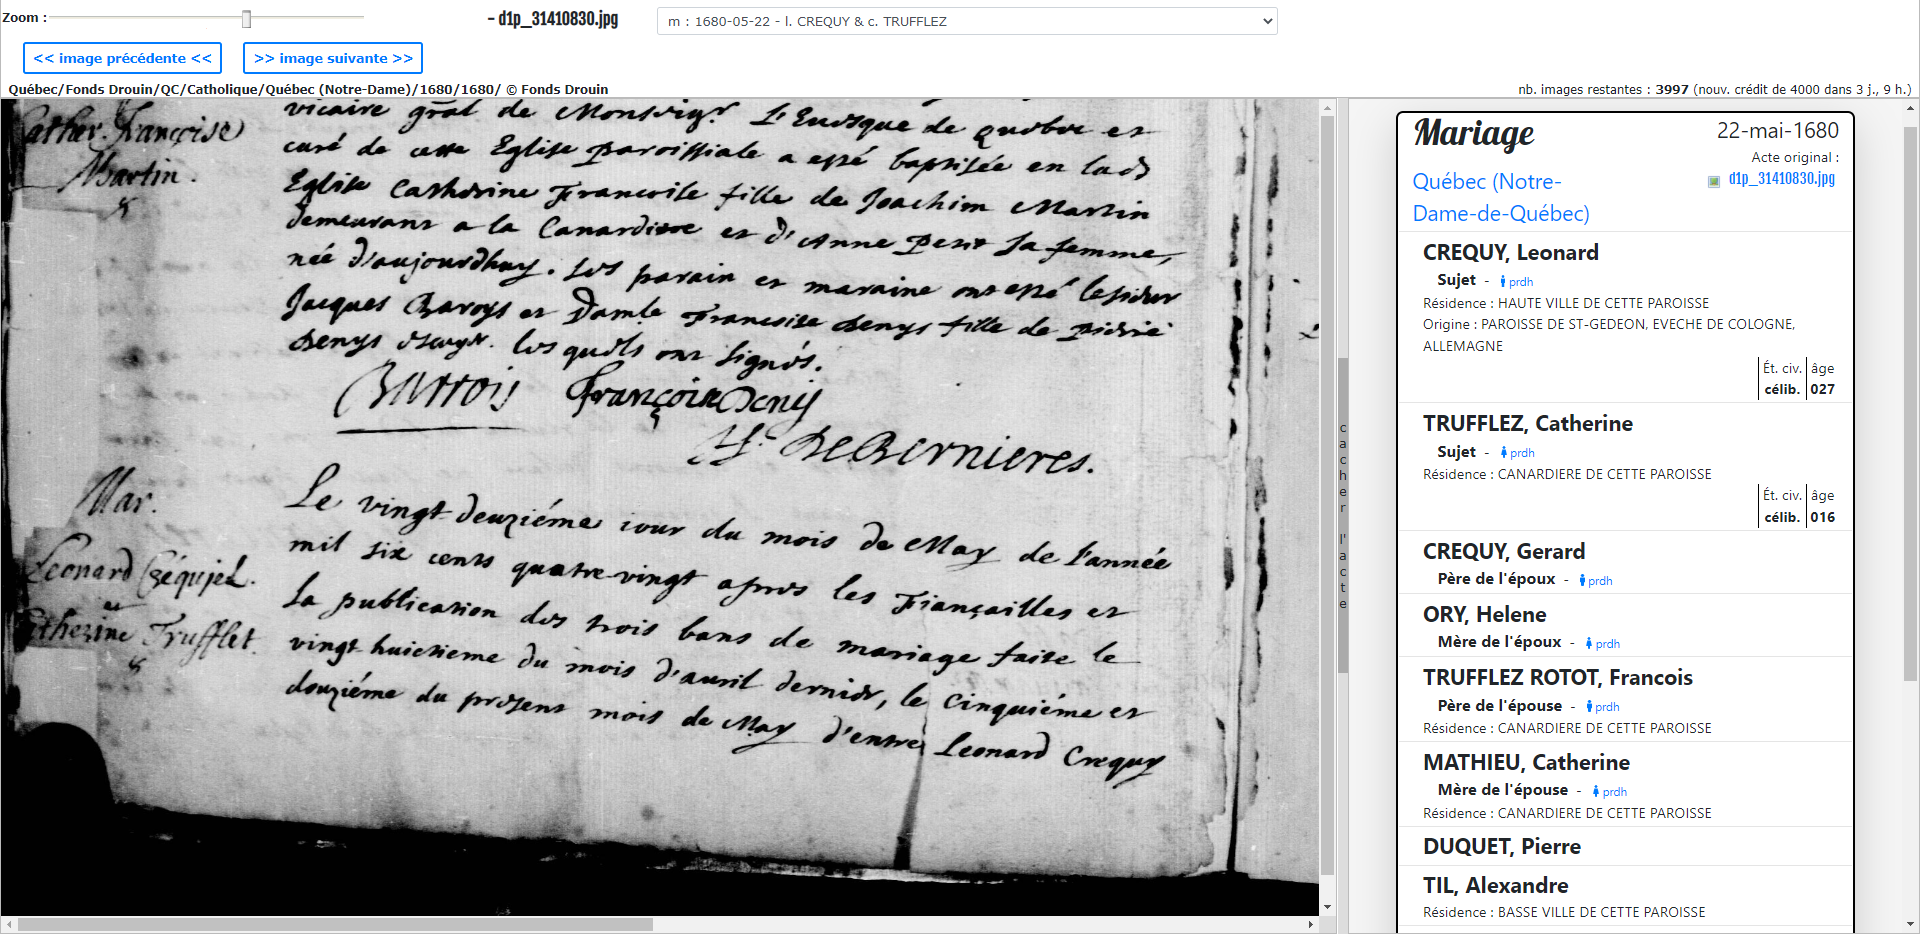 Zoom :
- d1p_31410830.jpg
m : 1680-05-22 - l. CREQUY & c. TRUFFLEZ
<< image précédente <<
>> image suivante >>
Québec/Fonds Drouin/QC/Catholique/Québec (Notre-Dame)/1680/1680/ © Fonds Drouin
nb. images restantes : 3997 (nouv. crédit de 4000 dans 3 j., 9 h.)
Cather. Françoise
Martin.
vicaire gnãl de Monseigr. L'Euesque de Quebec et
curé de cette Eglise Paroissiale a esté baptisée en lad
Eglise Catherine Francoise fille de Joachim Martin
demeurant a la Canardiere et d'Anne Petit sa femme,
née d'aujourdhuy. Les parain et maraine ont esté le sieur
Jacques Baroys et Damle Francoise denys fille de pierre
denys Escuyr. lesquels ont signés.
Barrois Françoise Denis
H. De Bernieres.
Mar.
Leonard Créquiel.
et
Catherine Trufflet.
Le vingt-deuziéme iour du mois de May de l'année
mil six cents quatre vingt apres les Fiançailles et
La publication des trois bans de mariage faite le
vingt huictieme du mois d'auril dernier, le cinquiéme et
douziéme du present mois de May d'entre Leonard Crequy
cacher l'acte
Mariage
22-mai-1680
Acte original :
d1p_31410830.jpg
Québec (Notre-
Dame-de-Québec)
CREQUY, Leonard
Sujet - prdh
Résidence : HAUTE VILLE DE CETTE PAROISSE
Origine : PAROISSE DE ST-GEDEON, EVECHE DE COLOGNE,
ALLEMAGNE
Ét. civ. âge
célib. 027
TRUFFLEZ, Catherine
Sujet - prdh
Résidence : CANARDIERE DE CETTE PAROISSE
Ét. civ. âge
célib. 016
CREQUY, Gerard
Père de l'époux - prdh
ORY, Helene
Mère de l'époux - prdh
TRUFFLEZ ROTOT, Francois
Père de l'épouse - prdh
Résidence : CANARDIERE DE CETTE PAROISSE
MATHIEU, Catherine
Mère de l'épouse - prdh
Résidence : CANARDIERE DE CETTE PAROISSE
DUQUET, Pierre
TIL, Alexandre
Résidence : BASSE VILLE DE CETTE PAROISSE